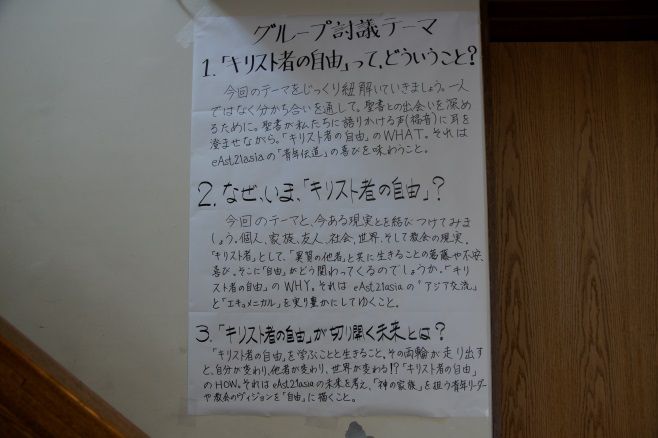 グループ討議テーマ
1.「キリスト者の自由」って、どういうこと?
今回のテーマをじっくり紐解いていきましょう。一人
ではなく分かち合いを通して。聖書との出会いを深め
るために。聖書が私たちに語りかける声(福音)に耳を
澄ませながら。「キリスト者の自由」のWHAT。それは
eAst21asiaの「青年伝道」の喜びを味わうこと。
2.なぜ、いま、「キリスト者の自由」?
今回のテーマと、今ある現実とを結びつけてみま
しょう。個人、家族、友人、社会、世界、そして教会の現実。
「キリスト者」として、「異質の他者」と共に生きることの葛藤や不安、
喜び。そこに「自由」がどう関わってくるのでしょうか。「キリ
スト者の自由」のWHY。それは eAst21asiaの"アジア交流"
と「エキュメニカル」を実り豊かにしてゆくこと。
3.「キリスト者の自由」が切り開く未来とは?
「キリスト者の自由」を学ぶことと生きること。その両輪が走り出す
と、自分が変わり、他者が変わり、世界が変わる!?「キリスト者の自由」
のHOW。それはeAst21asiaの未来を考え、「神の家族」を担う青年リーダー
や教会のヴィジョンを「自由」に描くこと。